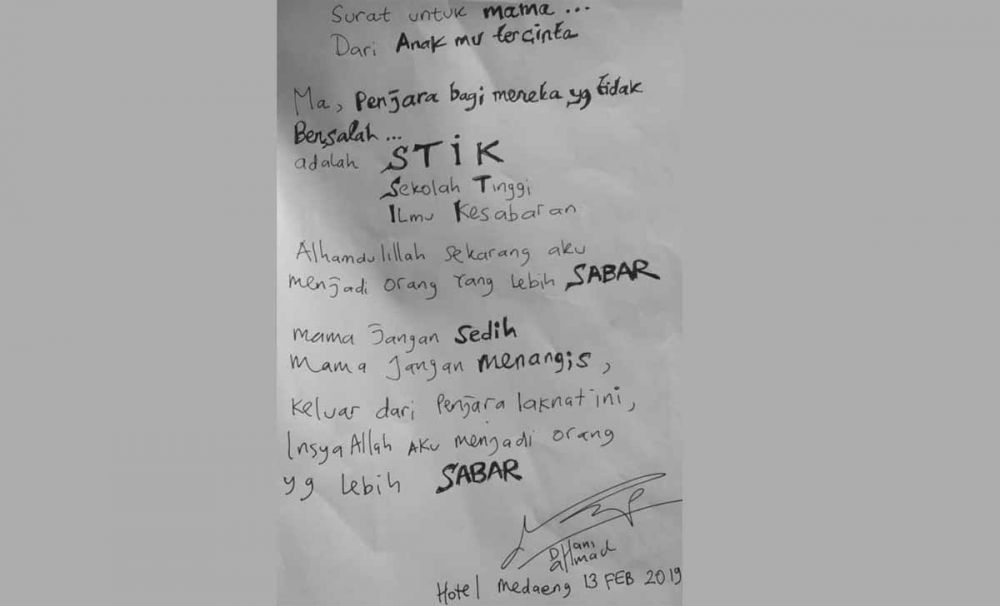 Surat untuk mama ...
Dari Anak mu tercinta
Ma, Penjara bagi mereka yg tidak
Bersalah ...
adalah STiK
Sekolah Tinggi
ILmu Kesabaran
Alhamdulillah sekarang aku
menjadi orang yang lebih SABAR
mama Jangan Sedih
Mama Jangan menangis,
Keluar dari Penjara laknat ini,
InsyaAllah AKu menjadi orang
yg lebih SABAR
DHani
aHmad
Hotel medaeng 13 FEB 2019